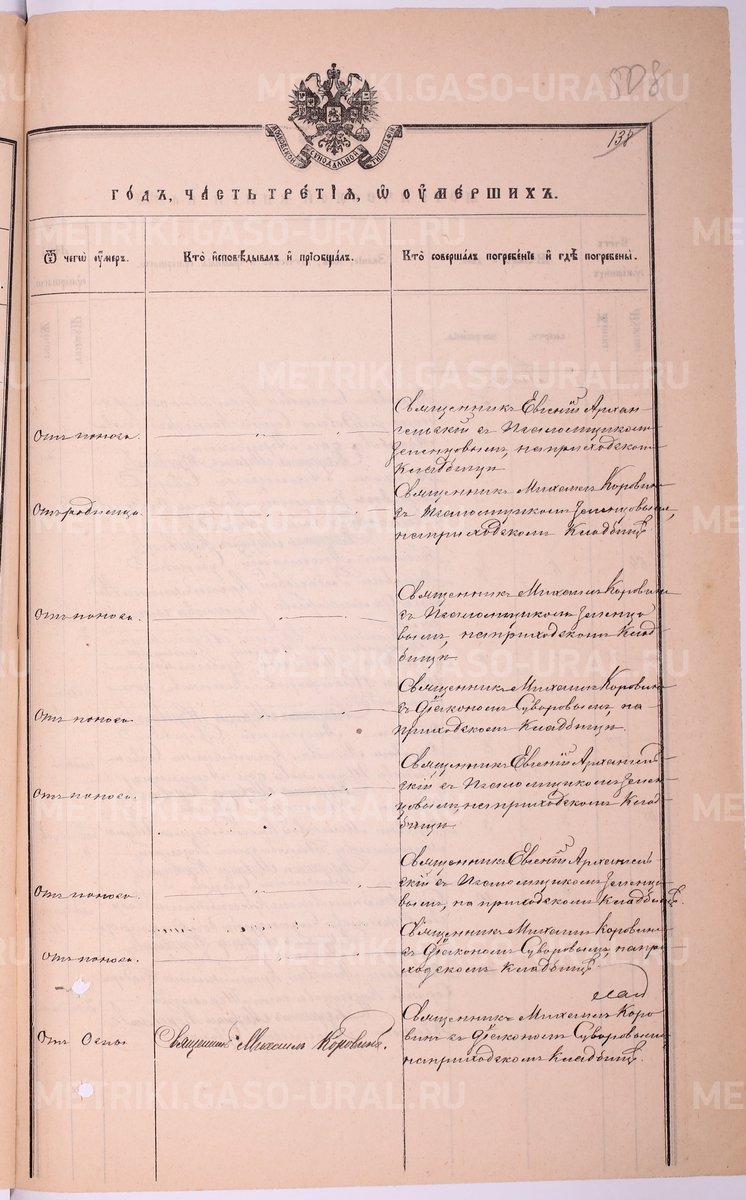 508
138
МОСКОВСКОЙ СѴНОДАЛЬНОЙ ТИПОГРАФІИ
ГОДЪ, ЧАСТЬ ТРЕТІЯ, Ѡ ОУМЕРШИХЪ.
Ѿ чегѡ оумеръ.
Кто исповѣдывалъ и пріобщалъ.
Кто совершалъ погребеніе и гдѣ погребены.
Отъ поноса.
Священникъ Евгеній Архан-
гельскій съ Псаломщикомъ
Зеленцовымъ, на приходскомъ
Кладбищи
Отъ родимца.
Священникъ Михаилъ Коровинъ
съ Псаломщикомъ Зеленцовымъ,
на приходскомъ Кладбищѣ
Отъ поноса.
Священникъ Михаилъ Коровинъ
съ Псаломщикомъ Зеленцо
вымъ, на приходскомъ Клад-
бищи.
Отъ поноса.
Священникъ Михаилъ Коровинъ
съ Діакономъ Суворовымъ, на
приходскомъ Кладбищи.
Отъ поноса.
Священникъ Евгеній Архангель
скій съ Псаломщикомъ Зелен
цовымъ, на приходскомъ Клад
бищи.
Отъ поноса.
Священникъ Евгеній Архангель
скій съ Псаломщикомъ Зеленцо
вымъ, на приходскомъ Кладбищѣ.
Отъ поноса.
Священникъ Михаилъ Коровинъ
съ Діакономъ Суворовымъ, на при
ходскомъ кладбищѣ
Отъ Оспы
Священникъ Михаилъ Коровинъ.
Священникъ Михаилъ Коро
винъ съ Діакономъ Суворовымъ
на приходскомъ кладбищѣ.
METRIKI.GASO-URAL.RU